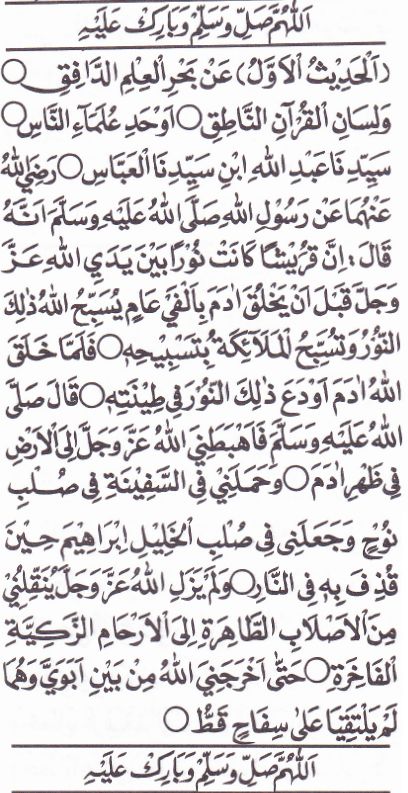 اَللّٰهُمَّ صَلِّ وَسَلِّمْ وَبَارِكْ عَلَيْهِ
(اَلْحَدِيْثُ الْاَوَّلُ) عَنْ بَحْرِ الْعِلْمِ الدَّافِقِ ○
وَلِسَانِ الْقُرْآنِ النَّاطِقِ ○ اَوْحَدِ عُلَمَآءِ النَّاسِ ○
سَيِّدِنَا عَبْدِ اللهِ ابْنِ سَيِّدِنَا الْعَبَّاسِ ○ رَضِيَ اللهُ
عَنْهُمَا عَنْ رَسُوْلِ اللهِ صَلَّى اللهُ عَلَيْهِ وَسَلَّمَ اَنَّهُ
قَالَ: اِنَّ قُرَيْشًا كَانَتْ نُوْرًا بَيْنَ يَدَيِ اللهِ عَزَّ
وَجَلَّ قَبْلَ اَنْ يَخْلُقَ اٰدَمَ بِاَلْفَيْ عَامٍ يُسَبِّحُ اللهَ ذٰلِكَ
النُّوْرُ وَتُسَبِّحُ الْمَلَآئِكَةُ بِتَسْبِيْحِهٖ ○ فَلَمَّا خَلَقَ
اللهُ اٰدَمَ اَوْدَعَ ذٰلِكَ النُّوْرَ فِيْ طِيْنَتِهٖ ○ قَالَ صَلَّى
اللهُ عَلَيْهِ وَسَلَّمَ فَاَهْبَطَنِيَ اللهُ عَزَّ وَجَلَّ اِلَى الْاَرْضِ
فِيْ ظَهْرِ اٰدَمَ ○ وَحَمَلَنِيْ فِي السَّفِيْنَةِ فِيْ صُلْبِ
نُوْحٍ وَجَعَلَنِيْ فِيْ صُلْبِ الْخَلِيْلِ اِبْرَاهِيْمَ حِيْنَ
قُذِفَ بِهٖ فِي النَّارِ ○ وَلَمْ يَزَلِ اللهُ عَزَّ وَجَلَّ يُنَقِّلُنِيْ
مِنَ الْاَصْلَابِ الطَّاهِرَةِ اِلَى الْاَرْحَامِ الزَّكِيَّةِ
الْفَاخِرَةِ ○ حَتّٰى اَخْرَجَنِيَ اللهُ مِنْ بَيْنِ اَبَوَيَّ وَهُمَا
لَمْ يَلْتَقِيَا عَلٰى سِفَاحٍ قَطُّ ○
اَللّٰهُمَّ صَلِّ وَسَلِّمْ وَبَارِكْ عَلَيْهِ